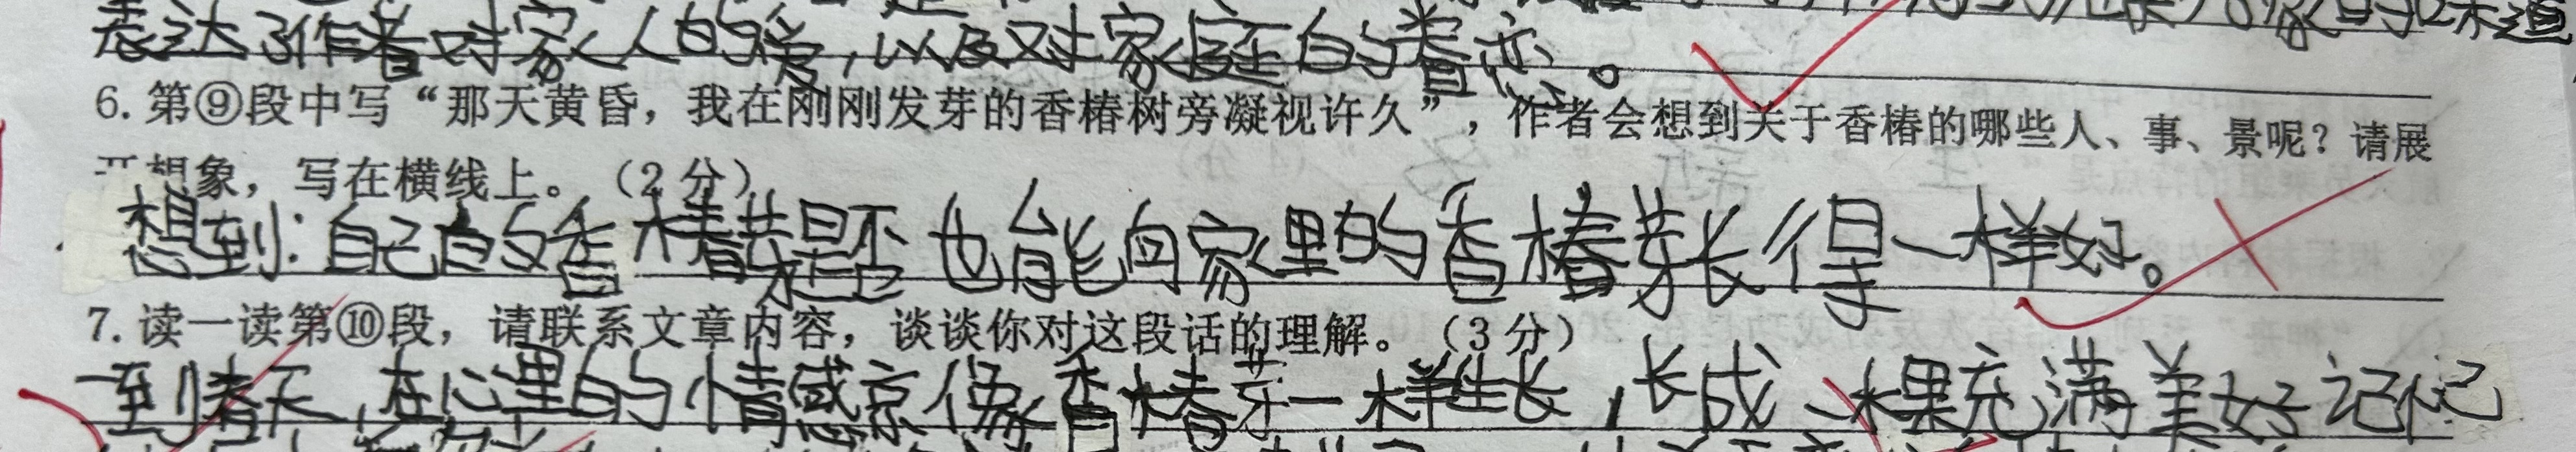 表达了作者对家人的爱,以及对家庭的眷恋。
味道
6.第⑨段中写“那天黄昏，我在刚刚发芽的香椿树旁凝视许久”，作者会想到关于香椿的哪些人、事、景呢？请展
开想象，写在横线上。（2分）
想到:自己的香椿芽是否也能向家里的香椿芽长得一样好。
7.读一读第⑩段，请联系文章内容，谈谈你对这段话的理解。（3分）
一到春天,在心里的情感就像香椿芽一样生长,长成一棵充满美好记忆